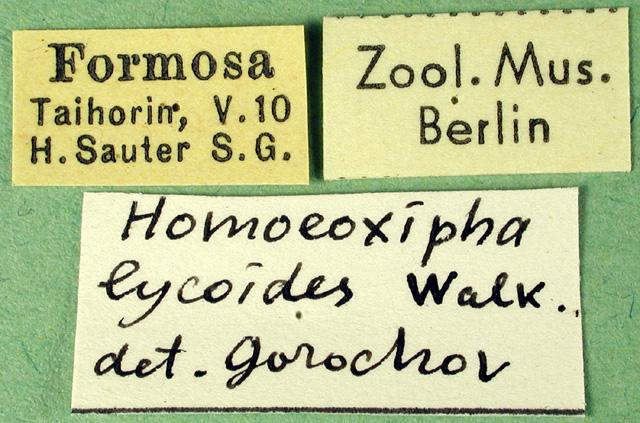 Formosa
Taihorin, V.10
H. Sauter S.G.
Zool. Mus.
Berlin
Homoeoxipha
lycoides Walk.
det. Gorochov